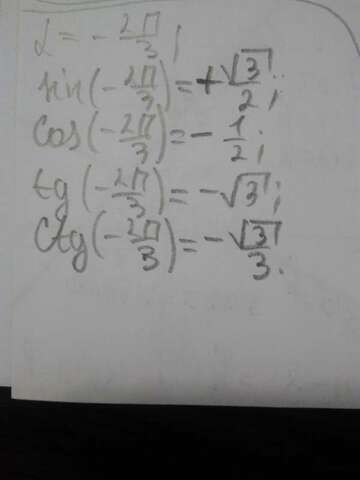 α = - 2π/3;
sin(- 2π/3) = + √3/2;
cos(- 2π/3) = - 1/2;
tg(- 2π/3) = - √3;
ctg(- 2π/3) = - √3/3.